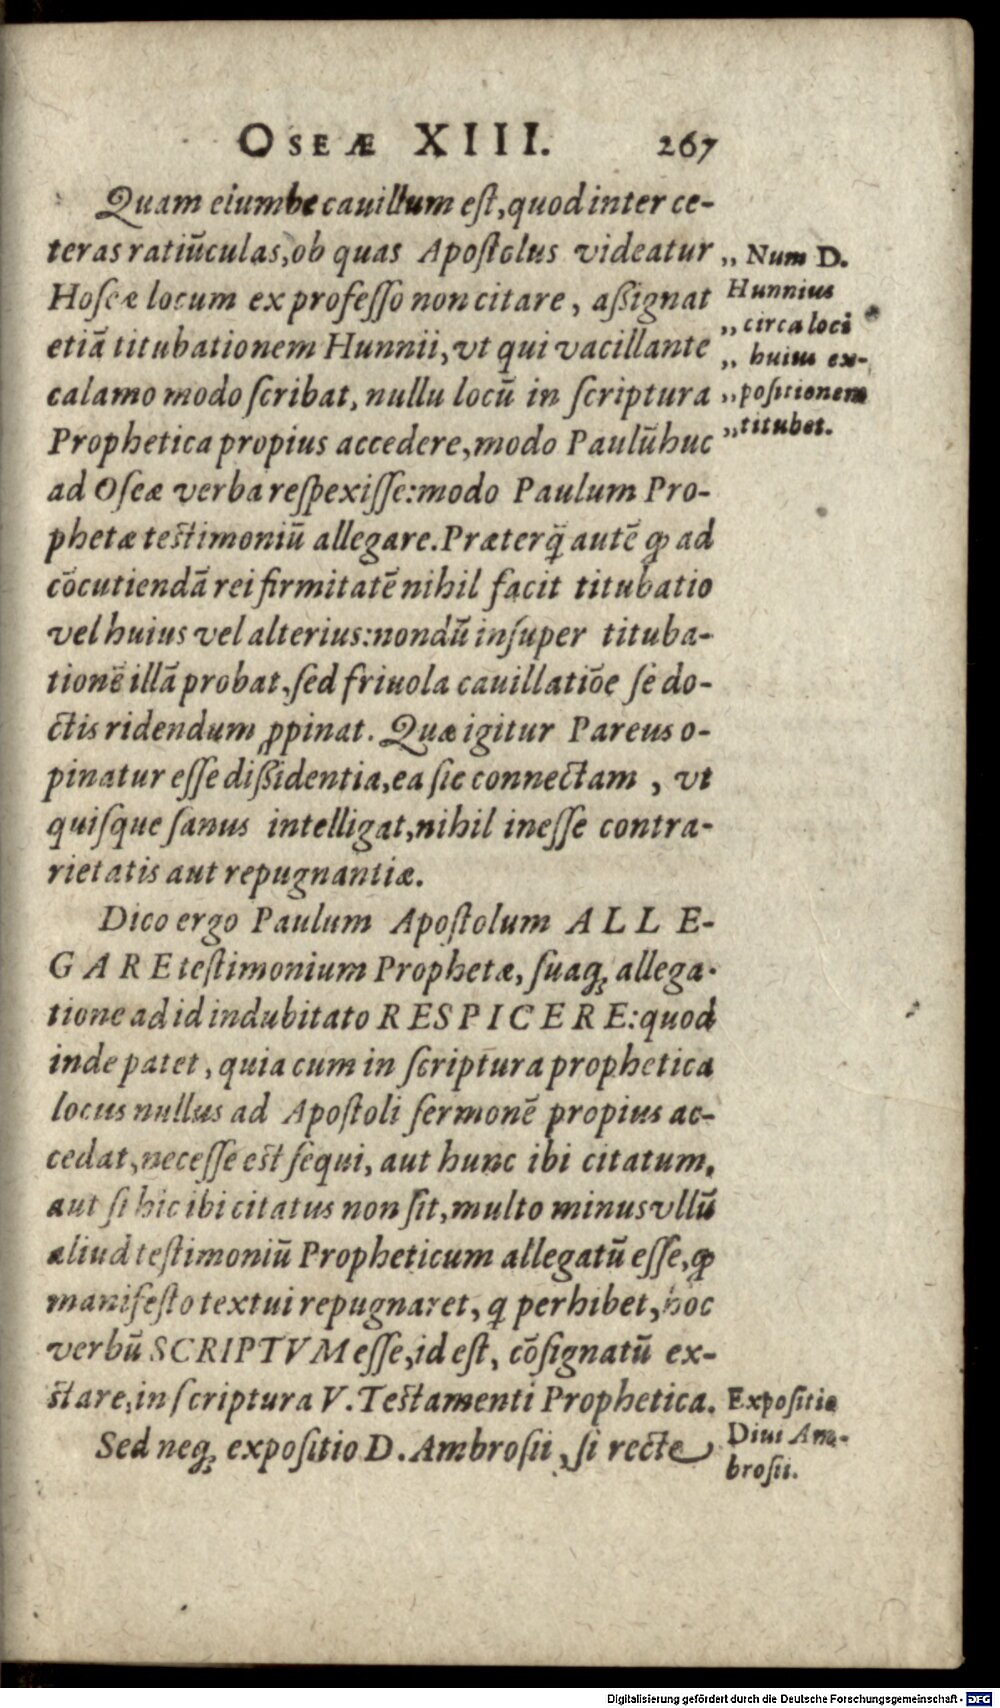 OSEÆ XIII. 267
Quam eiumbe cauillum est, quod inter ce-
teras ratiūculas, ob quas Apostolus videatur
Hoseæ locum ex professo non citare, aßignat
etiā titubationem Hunnii, vt qui vacillante
calamo modo scribat, nullu locū in scriptura
Prophetica propius accedere, modo Paulū huc
ad Oseæ verba respexisse: modo Paulum Pro-
phetæ testimoniū allegare. Præterq̃ autē ꝙ ad
cōcutiendā rei firmitatē nihil facit titubatio
vel huius vel alterius: nondū insuper tituba-
tionē illā probat, sed friuola cauillatiōe se do-
ctis ridendum ꝓpinat. Quæ igitur Pareus o-
pinatur esse dißidentia, ea sic connectam, vt
quisque sanus intelligat, nihil inesse contra-
rietatis aut repugnantiæ.
Dico ergo Paulum Apostolum ALLE-
GARE testimonium Prophetæ, suaq; allega-
tione ad id indubitato RESPICERE: quod
inde patet, quia cum in scriptura prophetica
locus nullus ad Apostoli sermonē propius ac-
cedat, necesse est sequi, aut hunc ibi citatum,
aut si hic ibi citatus non sit, multo minus vllū
aliud testimoniū Propheticum allegatū esse, ꝙ
manifesto textui repugnaret, q perhibet, hoc
verbū SCRIPTVM esse, id est, cōsignatū ex-
stare, in scriptura V. Testamenti Prophetica.
Sed neq; expositio D. Ambrosii, si recte
„ Num D.
Hunnius
„ circa loci
„ huius ex-
„ positionem
„ titubet.
Expositio
Diui Am-
brosii.
Digitalisierung gefördert durch die Deutsche Forschungsgemeinschaft - DFG